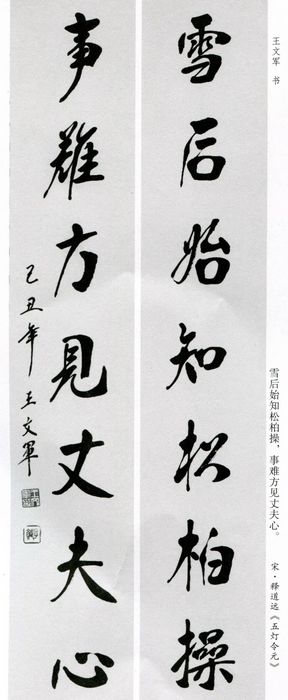 王文军 书
雪后始知松柏操
事難方見丈夫心
己丑年 王文军
雪后始知松柏操，事难方见丈夫心。
宋·释道远《五灯会元》